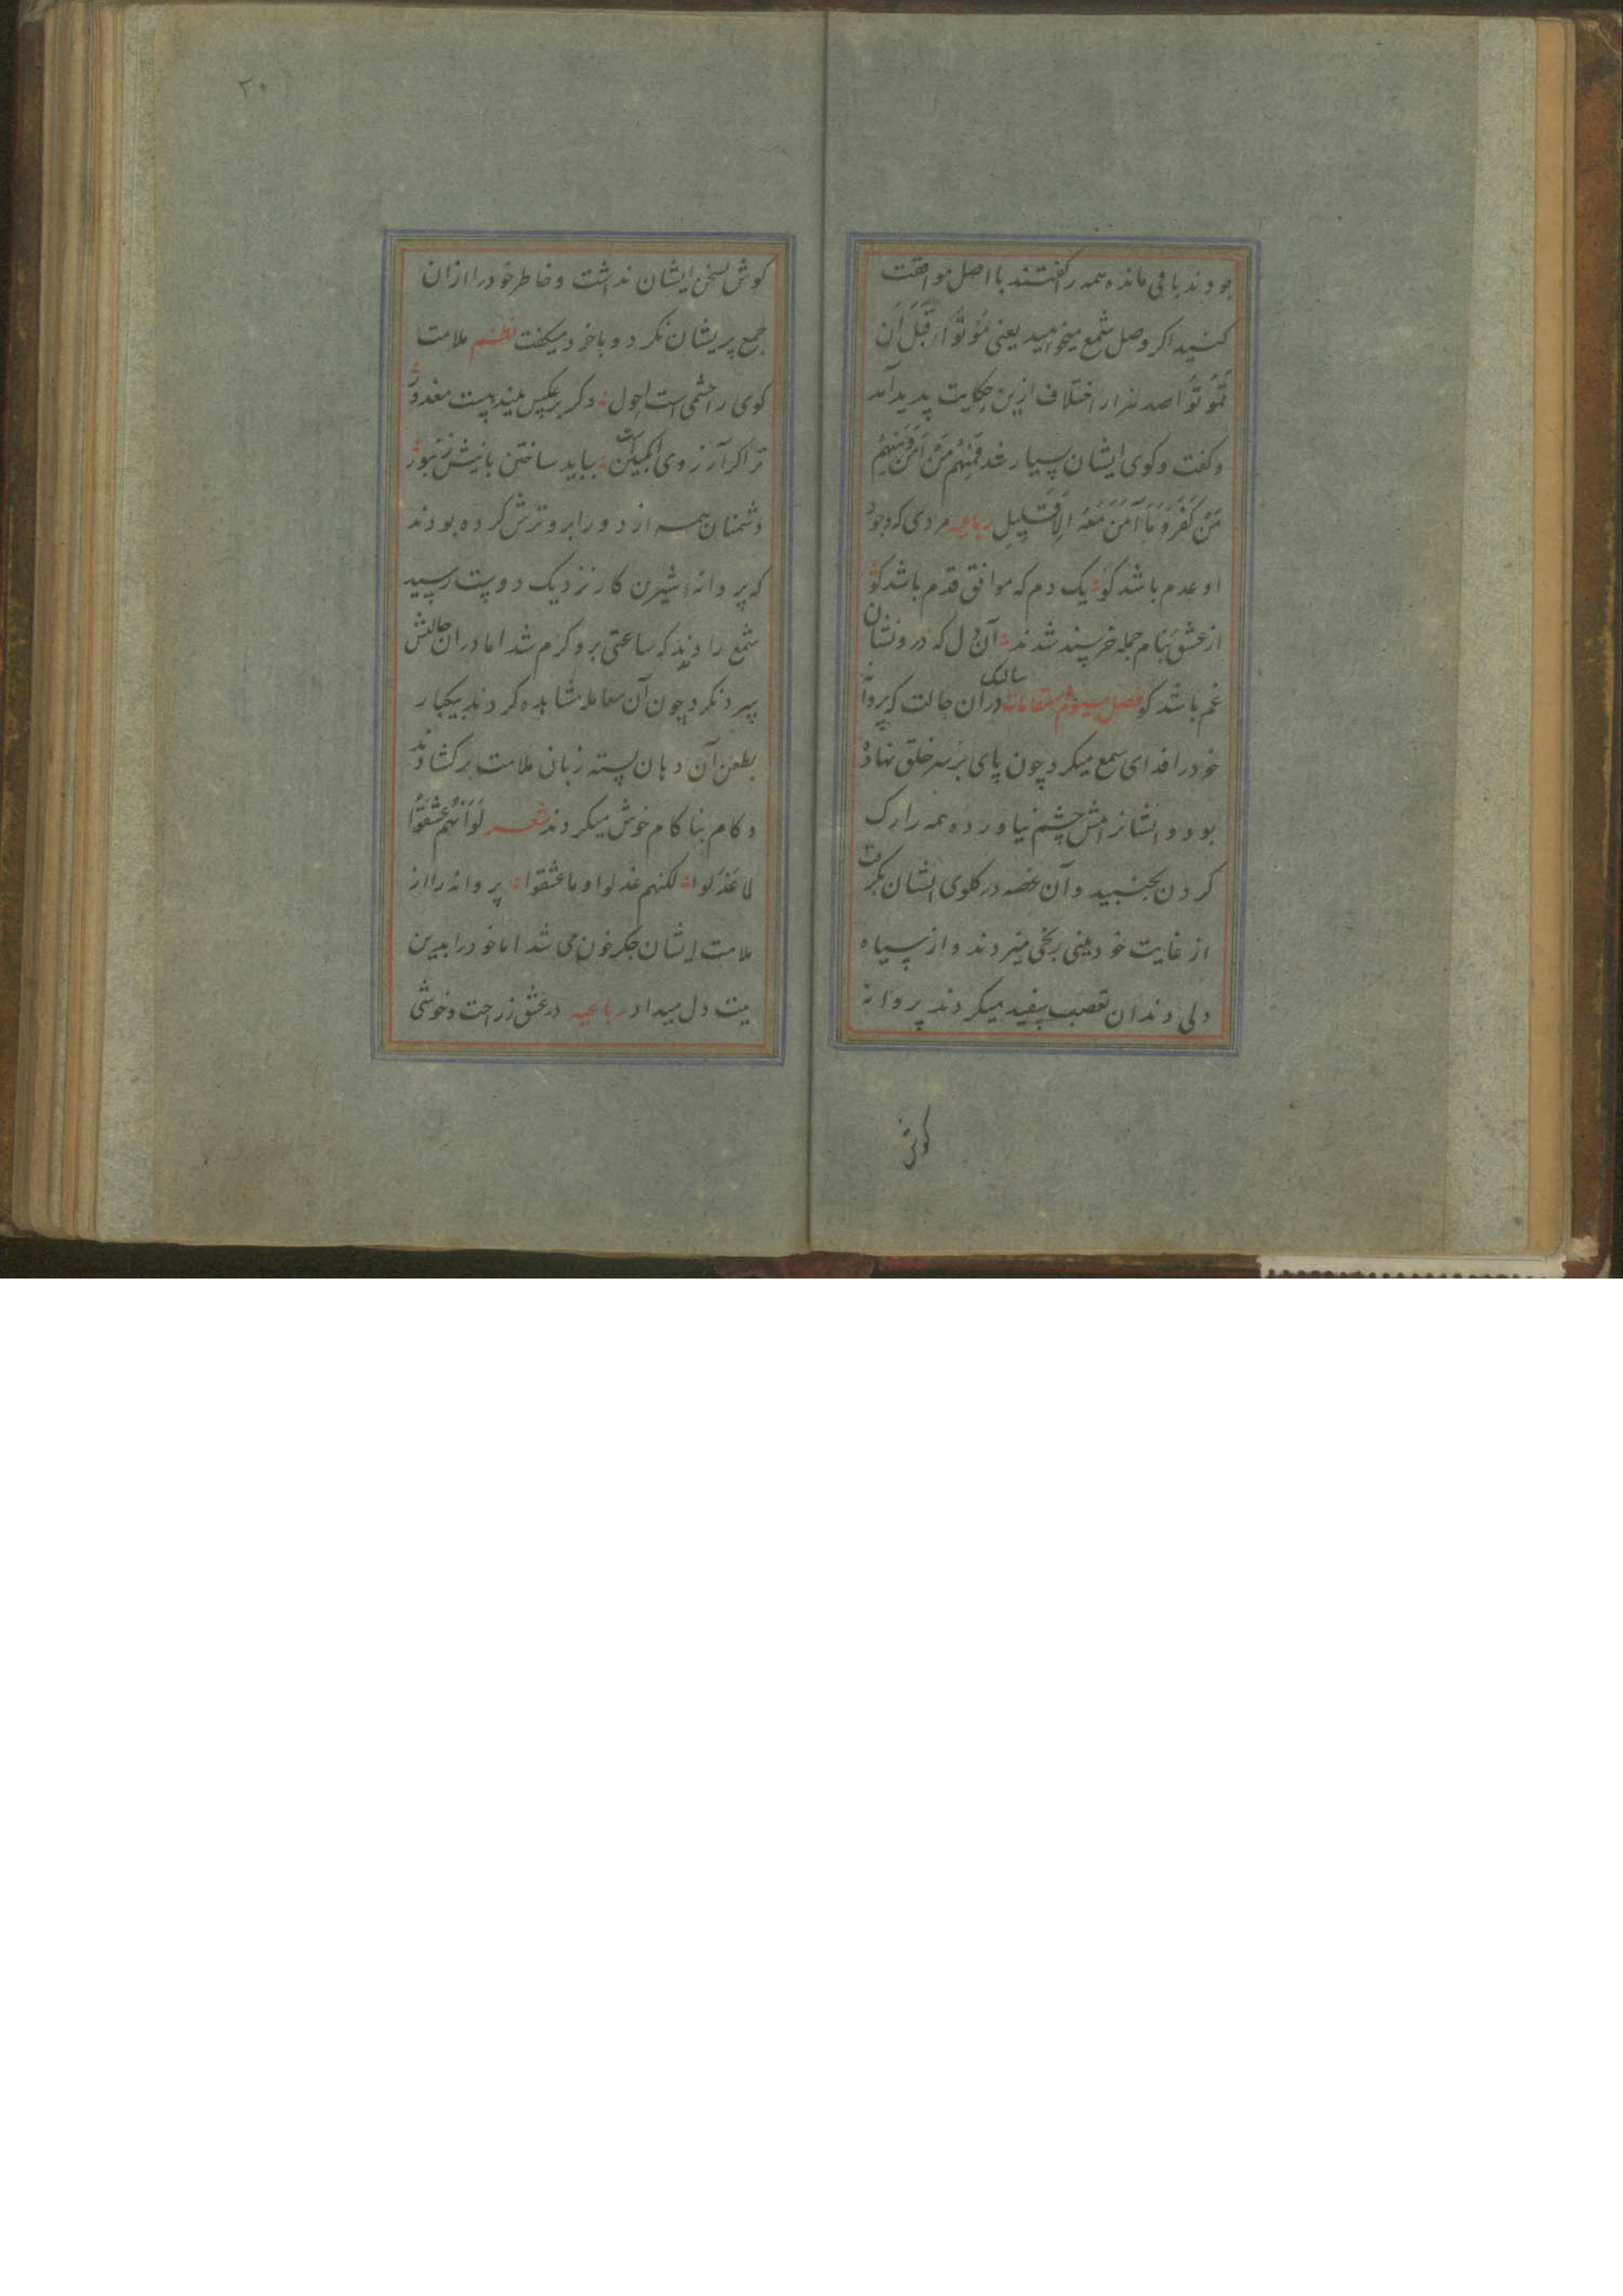 بودند باقی مانده همه را کفتند با اصل موافقت
کنید اکر وصل شمع میخواهید یعنی مُوتُوا قَبلَ اَن
تَمُوتُوا صد هزار اختلاف ازین حکایت پدید آمد
و کفت و کوی ایشان بسیار شد فَمِنهُم مَن آمَنَ وَمِنهُم
مَن کَفَرَ وَمَا آمَنَ مَعَهُ اِلا قَلِیل رباعیه مردی که وجود
او عدم باشد کو یک دم که موافق قدم باشد کو
از عشق بنام جمله خرسند شدند آن دل که درو نشان
غم باشد کو فصل سیوم مقامات سالک در آن حالت که پروانه
خود را فدای شمع میکرد چون پای بر سر خلق نهاده
بود و ایشانرا مش چشم نیاورده همه را رک
کردن بجنبید و آن غصه در کلوی ایشان بکرفت
از غایت خود بینی یخی میزدند و از سیاه
دلی دندان تعصب سفید میکردند پروانه
کوش
۲۰
کوش بسخن ایشان نداشت و خاطر خود را از ان
جمع پریشان نکرد و با خود میکفت نظم ملامت
کوی را چشمی است احول دکر برعکس بیند هست معذور
ترا کر آرزوی انکبین است بباید ساختن با نیش زنبور
دشمنان همه از دور ابرو ترش کرده بودند
که پروانه شیرین کار نزدیک دوست رسید
شمع را دیدند که ساعتی برو کرم شد اما در ان حالتش
سرد نکرد چون آن معامله مشاهده کردند بیکبار
بطعن آن دهان بسته زبان ملامت برکشادند
و کام بناکام خوش میکردند شعر لَو اَنَّهُم عَشِقُوا
لما عَذَلوا لکنهم عذلوا و ما عشقوا پروانه را از
ملامت ایشان جکر خون می شد اما خود را بدین
بیت دل میداد رباعیه در عشق ز راحت و خوشی